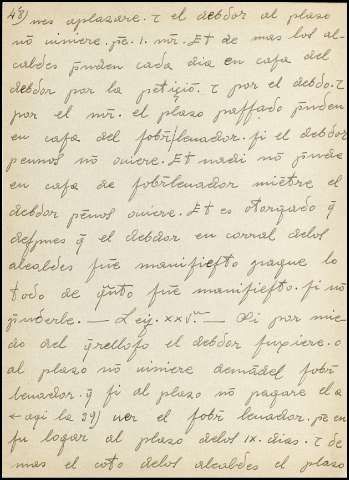 48) nes aplazare. τ el debdor al plazo
nõ viniere. pe. 1. mr. Et de mas los al-
caldes pinden cada dia en casa del
debdor por la petiçiõ. τ por el debdo. τ
por el mr. el plazo passado pinden
en casa del sobrleuador. si el debdor
pennos nõ ouiere. Et nadi nõ pinde
en casa de sobrleuador miẽtre el
debdor pẽnos ouiere. Et es otorgado q̃
despues q̃ el debdor en corral delos
alcaldes fue manifiesto pague lo
todo de q̃nto fue manifiesto. si nõ
— Ley. xxv — Si por mie-
do del q̃relloso el debdor fuxiere. o
al plazo nõ viniere demãdel sobr
leuador. q̃ si al plazo nõ pagare el a
← aqi la 39) uer el sobr leuador. pe en
su logar al plazo delos IX. dias. τ de
mas el coto delos alcaldes el plazo